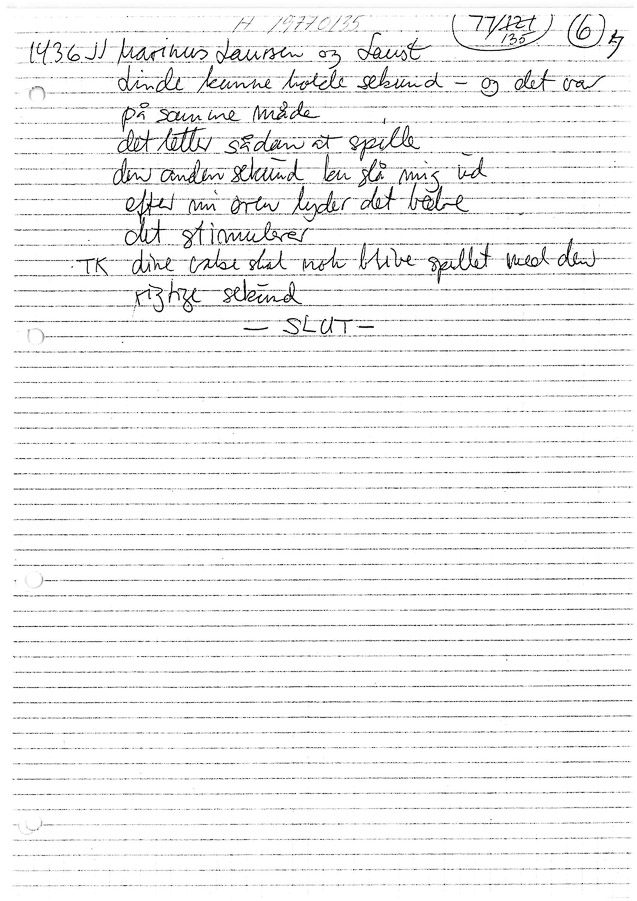 H 19770135
77/121 135 6
1436 JJ Marinus Laursen og Laust
Linde kunne holde sekund - og det var
på samme måde
det letter sådan at spille
den anden sekund kan slå mig ud
efter mi ören lyder det bedre
det stimulerer
TK dine valse skal nok blive spillet med den
rigtige sekund
- SLUT -